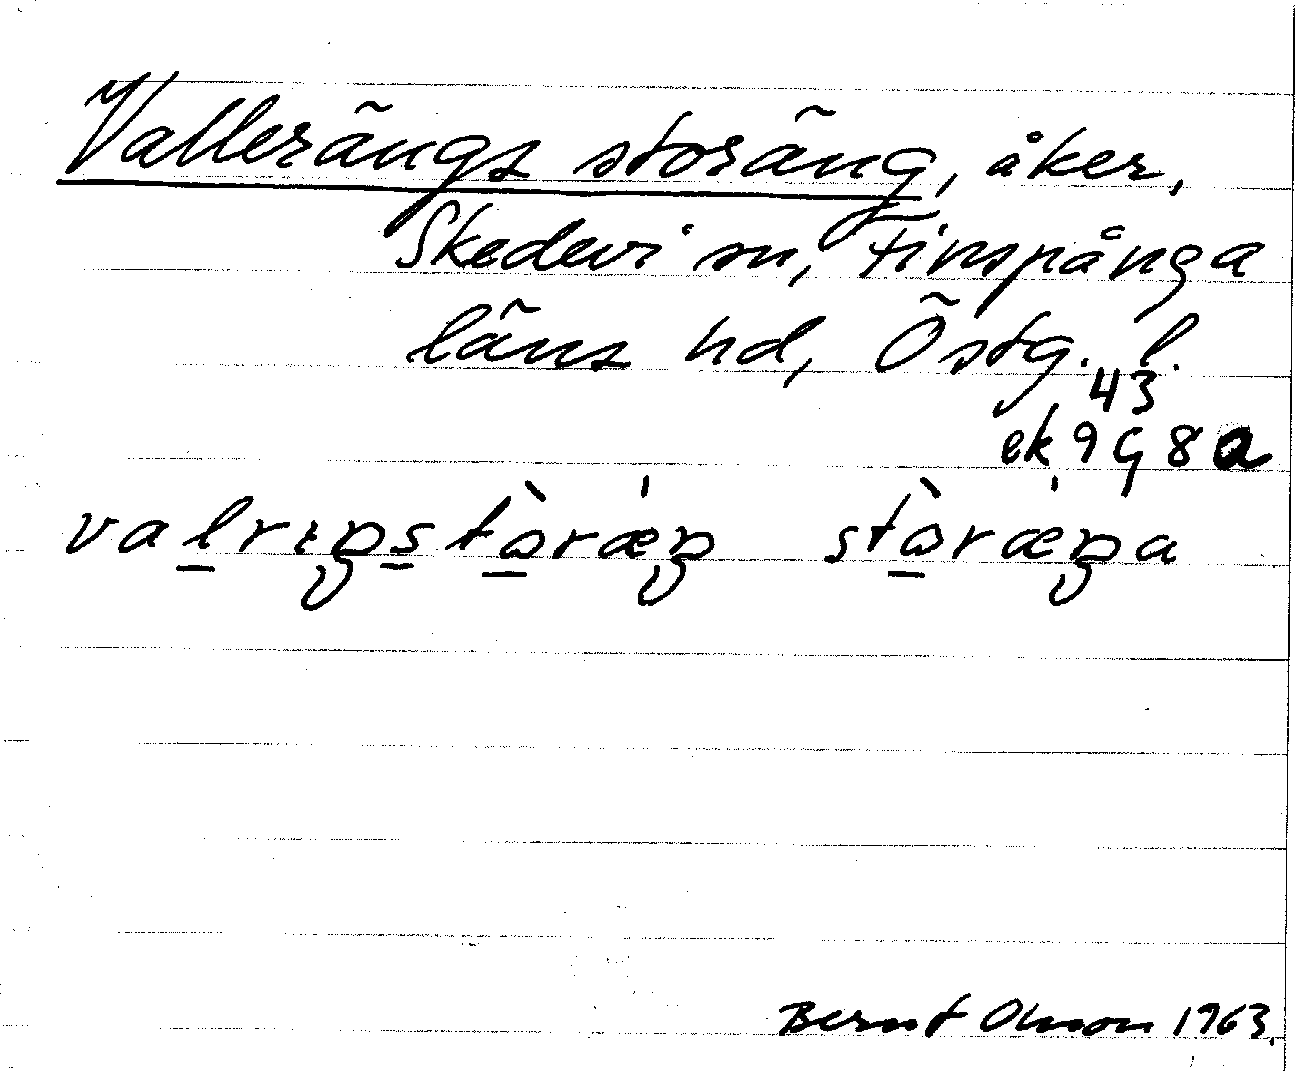 Vallerängs storäng, åker,
Skedevi sn, Finspånga
läns hd, Östg. l.
43
ek 9 G 8 a
valrıŋstòræ̍ŋ stòræ̍ŋa
Bernt Olsson 1963.